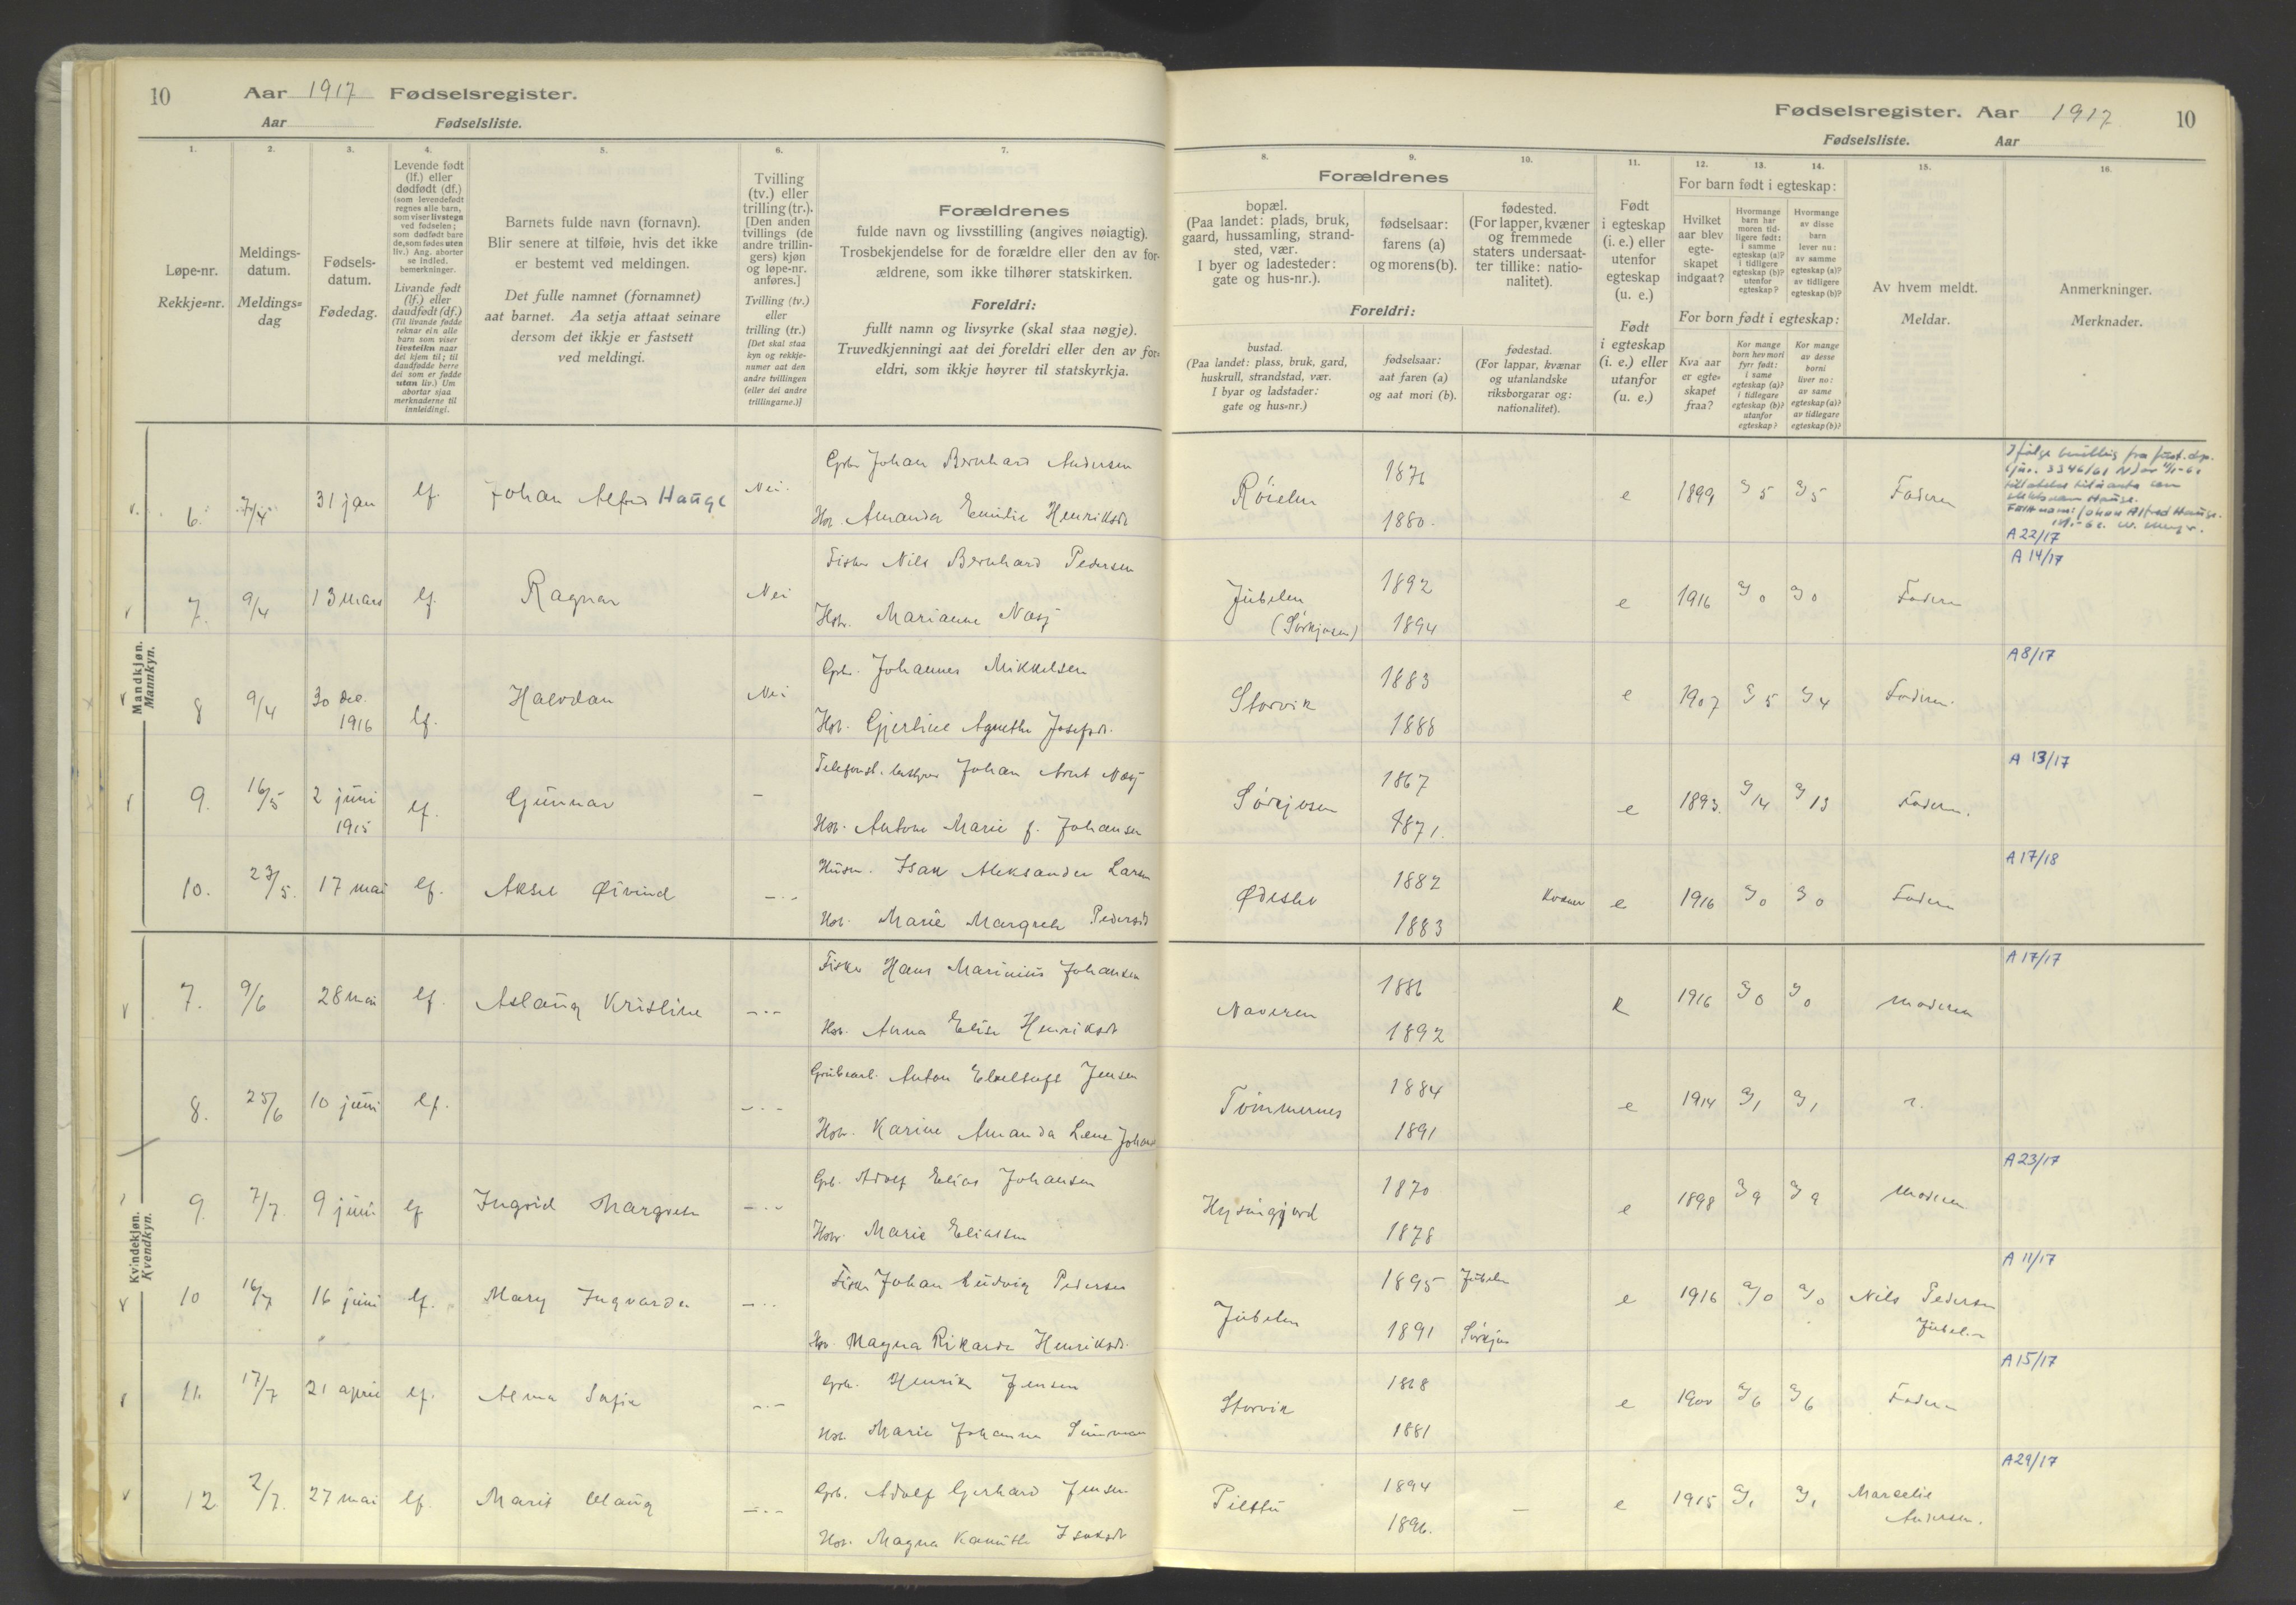 10 Aar 1917 Fødselsregister.
Aar Fødselsliste.
1. 2. 3. 4. 5. 6. 7.
Løpe-nr.
Rekkje=nr.
Meldings-
datum.
Meldings=
dag
Fødsels-
datum.
Fødedag.
Levende født
(lf.) eller
dødfødt (df.)
(som levendefødt
regnes alle barn,
som viser livstegn
ved fødselen;
som dødfødt bare
de, som fødes uten
liv.) Ang. aborter
se indled.
bemerkninger.
Livande født
(lf.) eller
daudfødt (df.)
(Til livande fødde
reknar ein alle
barn som viser
livsteikn naar
dei kjem til; til
daudfødde berre
dei som er fødde
utan liv.) Um
abortar sjaa
merknaderne til
innleidingi.
Barnets fulde navn (fornavn).
Blir senere at tilføie, hvis det ikke
er bestemt ved meldingen.
Det fulle namnet (fornamnet)
aat barnet. Aa setja attaat seinare
dersom det ikkje er fastsett
ved meldingi.
Tvilling
(tv.) eller
trilling (tr.).
[Den anden
tvillings (de
andre trillin-
gers) kjøn
og løpe-nr.
anføres.]
Tvilling (tv.)
eller
trilling (tr.)
[Det skal staa
kyn og rekkje-
numer aat den
andre tvillingen
(eller dei andre
trillingarne.)]
Forældrenes
fulde navn og livsstilling (angives nøiagtig).
Trosbekjendelse for de forældre eller den av for-
ældrene, som ikke tilhører statskirken.
Foreldri:
fullt namn og livsyrke (skal staa nøgje).
Truvedkjenningi aat dei foreldri eller den av for-
eldri, som ikkje høyrer til statskyrkja.
Mandkjøn.
Mannkyn.
6. 7/4 31 jan lf. Johan Alfred Hauge Nei. Grb. Johan Bernhard Andersen
Hst. Amanda Emilie Henriksdt
7. 9/4 13 mars lf. Ragnar Nei Fisker Nils Bernhard Pedersen
Hstr. Marianne Næsj
8 9/4 30 dec. 1916 lf. Halvdan Nei Grb. Johannes Mikkelsen
Hst. Gjertine Agnethe Josefsdt.
9. 16/5 2 juni 1915 lf. Gunnar – Johan Arnt Næsj
Hst. Antone Marie f. Johansen
10. 23/5. 17 mai lf. Aksel Øivind –·– Husm. Isak Aleksander Larsen
Hst. Marie Margrete Pedersdt
Kvindekjøn.
Kvendkyn.
7. 9/6 28 mai lf. Aslaug Kristine –·– Fisker Hans Marinius Johansen
Hst. Anna Elise Henriksdt
8. 25/6 10 juni lf. –·– Anton Jensen
Hstr. Karine Amanda Lene
9. 7/7. 9 juni lf Ingrid Margrete –·– Grb. Adolf Elias Johansen
Hstr. Marie Eliassen
10 16/7 16 juni lf. Mary Ingvarda –·· Fisker Johan Ludvig Pedersen
Hst. Magna Rikarda Henriksdt.
11. 17/7 21 april lf. Alma Sofie –·– Grb. Henrik Jensen
Hst. Marie Johanna
12 2/7. 27 mai lf. Marit –·– Grb. Adolf Gerhard Jensen
Hst. Magna Isaksdt
Fødselsregister. Aar 1917 10
Fødselsliste. Aar
8. 9. 10. 11. 12. 13. 14. 15. 16.
Forældrenes
bopæl.
(Paa landet: plads, bruk,
gaard, hussamling, strand-
sted, vær.
I byer og ladesteder:
gate og hus-nr.).
fødselsaar:
farens (a)
og morens (b).
fødested.
(For lapper, kvæner
og fremmede
staters undersaat-
ter tillike: natio-
nalitet).
Foreldri:
bustad.
(Paa landet: plass, bruk, gard,
huskrull, strandstad, vær.
I byar og ladstader:
gate og hus=nr.)
fødselsaar:
aat faren (a)
og aat mori (b).
fødestad.
(For lappar, kvænar
og utanlandske
riksborgarar og:
nationalitet).
Født
i egteskap
(i. e.) eller
utenfor
egteskap
(u. e.)
Født
i egteskap
(i. e.) eller
utanfor
(u. e.)
For barn født i egteskap:
Hvilket
aar blev
egte-
skapet
indgaat?
Hvormange
barn har
moren tid-
ligere født:
i samme
egteskap (a)?
i tidligere
egteskap (b)?
utenfor
egteskap?
Hvormange
av disse
barn
lever nu:
av samme
egteskap (a)?
av tidligere
egteskap (b)?
For born født i egteskap:
Kva aar
er egte=
skapet
fraa?
Kor mange
born hev mori
fyrr født:
i same
egteskap (a)?
i tidlegare
egteskap (b)?
utanfor
egteskap?
Kor mange
av desse
borni
liver no:
av same
egteskap (a)?
av tidlegare
egteskap (b)?
Av hvem meldt.
Meldar.
Anmerkninger.
Merknader.
Røielen 1876 1880. e 1899 a) 5 a) 5 Faderen
Ifølge bevilling fra just.dep.
A 22/17
Jubelen (Sørkjosen) 1892 1894 e 1916 a) 0 a) 0 Faderen A 14/17
Storvik 1883 1888 e 1907 a) 5 a) 4 Faderen A 8/17
Sørkjosen 1867 1871. e 1893. a) 14 a) 13 Faderen. A 13/17
1882 1883 Kvæner e 1916 a) 0 a) 0 Faderen A 17/18
Naveren 1886 1892 1916 a) 0 a) 0 Moderen A 17/17
Tømmernes 1884 1891 e 1914 a) 1 a) 1
1870 1878 e 1898 a) 9 a) 9 Moderen A 23/17
Jubelen 1895 Jubelen 1891 Sørkjos e 1916 a) 0 a) 0 Nils Pedersen Jubelen A 11/17
Storvik 1868 1881 e 1900 a) 6 a) 6 Faderen A 15/17
Pilttu 1894 1896. – e 1915 a) 1 a) 1 Marselie Andersen. A 29/17